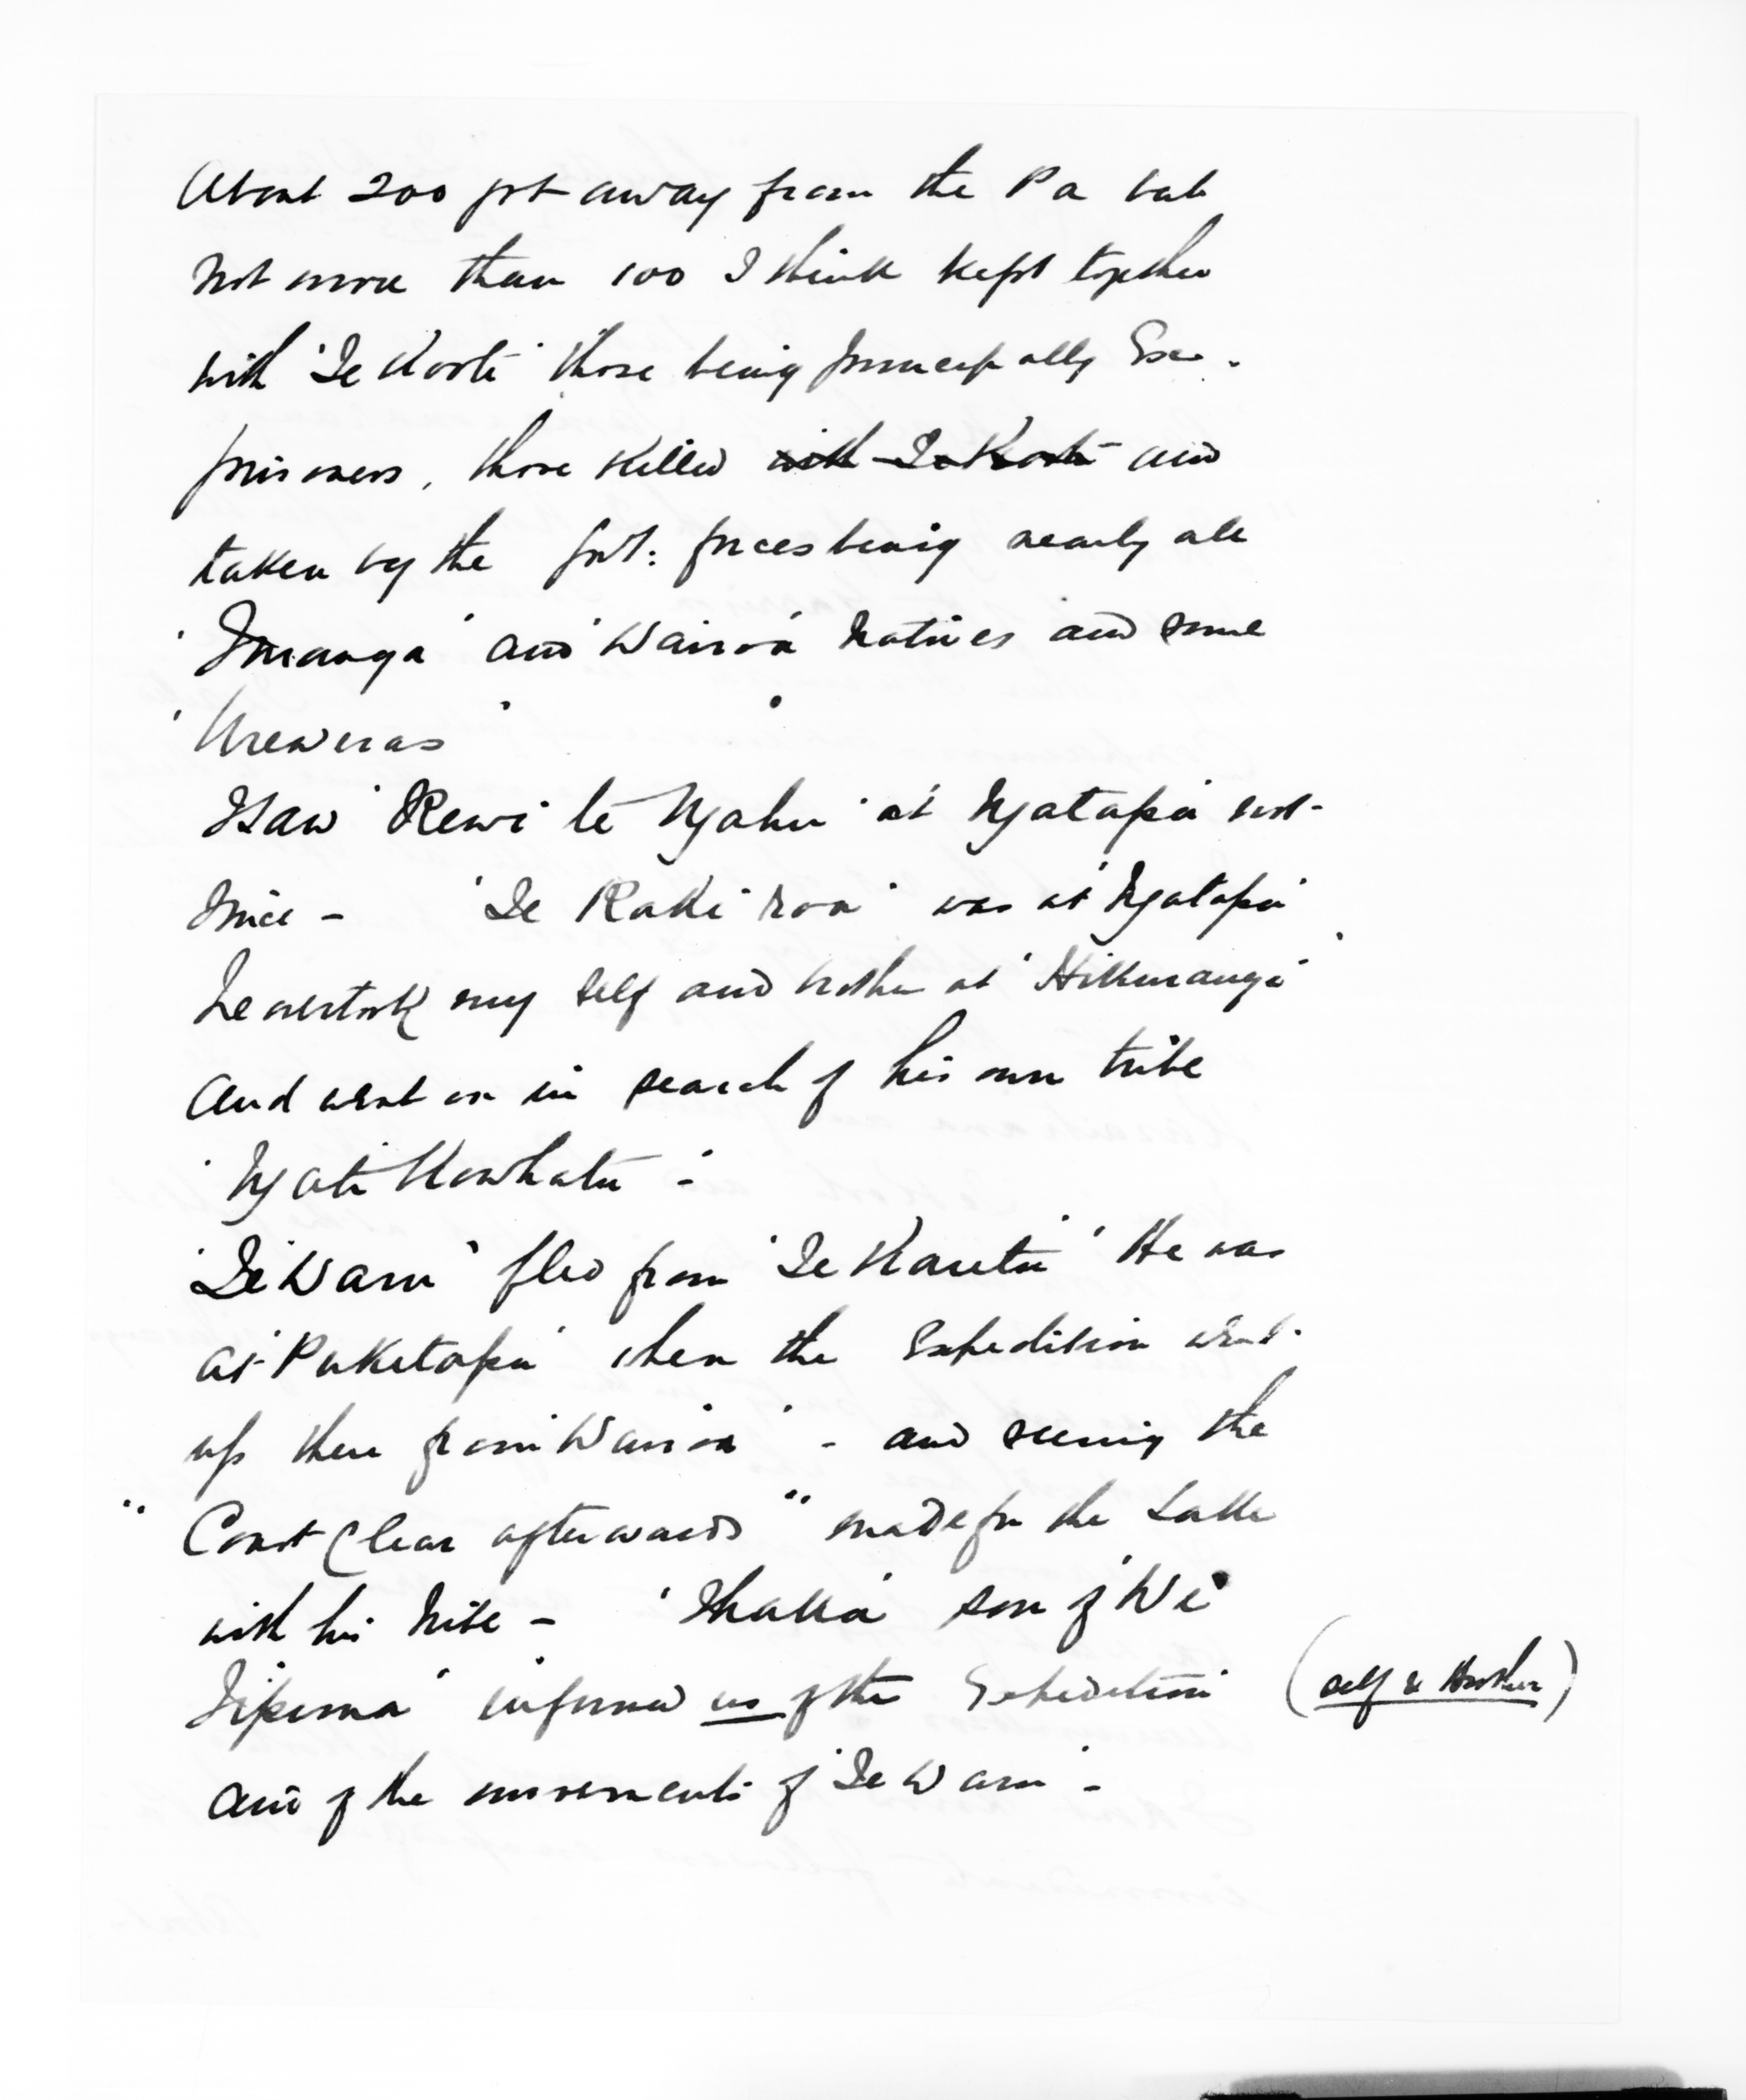 About 200 got away from the Pa but
not more than 100 I think kept together
with 'Te Kooti' those being principally Ex-
prisoners, those killed with Te Kooti and
taken by the Govt: forces being nearly all
'Turanga' and 'Wairoa' Natives and some
'Ureweras'
I saw 'Rewi te Ngahu' at 'Ngatapa' not
since - 'Te Raki roa' was at 'Ngatapa'
he overtook my self and brother at 'Hikurangi'
and went on in search of his own tribe
'Ngati Kowhatu' -
'Te Waru' fled from 'Te Karetu' He was
at 'Puketapu' when the Expedition went
up there from 'Wairoa' - and seeing the
"Coast Clear afterwards" made for the Lake
with his tribe - 'Ihaka' son of 'Wi
Tipuna' informed us of the Expedition (self & Brother)
and of the movements of 'Te Waru' -